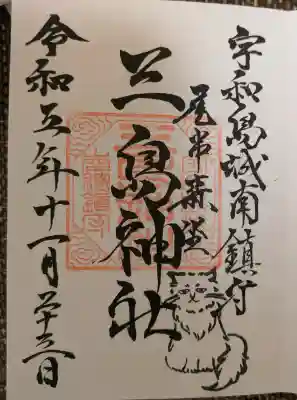 宇和島城南鎮守
尾串森坐
三島神社
令和五年十一月二十三日